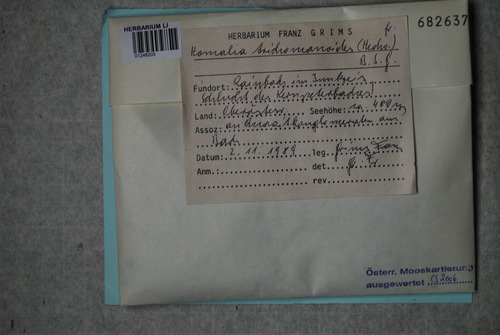 HERBARIUM LI
682637
HERBARIUM FRANZ GRIMS
fr.
Homalia trichomanoides (Hedw.)
B.S.G.
Fundort: Rainbach im Innkreis,
Schlucht des
Land: Oberösterr. Seehöhe: ca. 400 m
Assoz: an aus
Bach
Datum: 2.11.1989 leg. Grims Franz
Anm.: det.
rev.
Österr. Mooskartierung
ausgewertet 2006